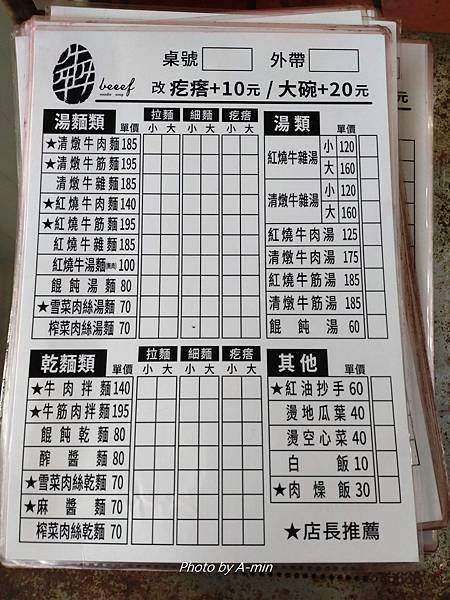 beeef
noodle soup
桌號 外帶
改 疙瘩+10元 / 大碗+20元
湯麵類 單價 拉麵 細麵 疙瘩
小 大 小 大 小 大
★清燉牛肉麵 185
★清燉牛筋麵 195
清燉牛雜麵 185
★紅燒牛肉麵 140
★紅燒牛筋麵 195
紅燒牛雜麵 185
紅燒牛湯麵(無肉) 100
餛飩湯麵 80
★雪菜肉絲湯麵 70
榨菜肉絲湯麵 70
湯類 單價
紅燒牛雜湯 小 120
大 160
清燉牛雜湯 小 120
大 160
紅燒牛肉湯 125
清燉牛肉湯 175
紅燒牛筋湯 185
清燉牛筋湯 185
餛飩湯 60
乾麵類 單價 拉麵 細麵 疙瘩
小 大 小 大 小 大
★牛肉拌麵 140
★牛筋肉拌麵 195
餛飩乾麵 80
醡醬麵 80
★雪菜肉絲乾麵 70
★麻醬麵 70
榨菜肉絲乾麵 70
其他 單價
★紅油抄手 60
燙地瓜葉 40
燙空心菜 40
白飯 10
★肉燥飯 30
★店長推薦
元
Photo by A-min